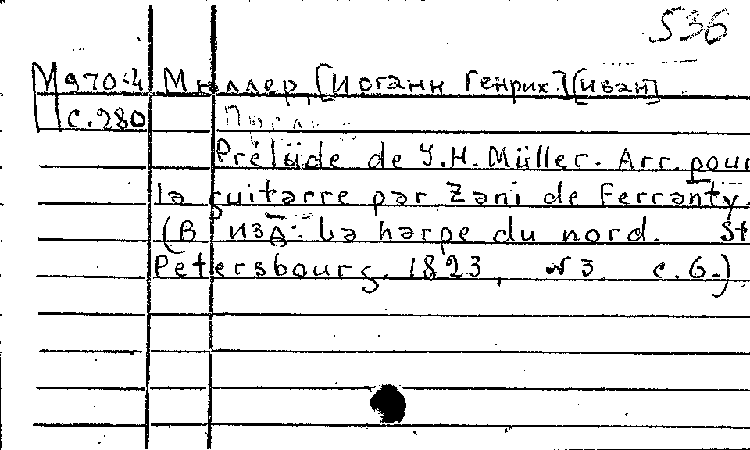 536
М970:4 Мюллер, [Иоганн Генрих.] [Иван]
с.280
Prélude de J.H. Müller. Arr. pour
la guitarre par Zani de Ferranty.
(В изд: La harpe du nord. St
Petersbourg. 1823, №3 с.6.)